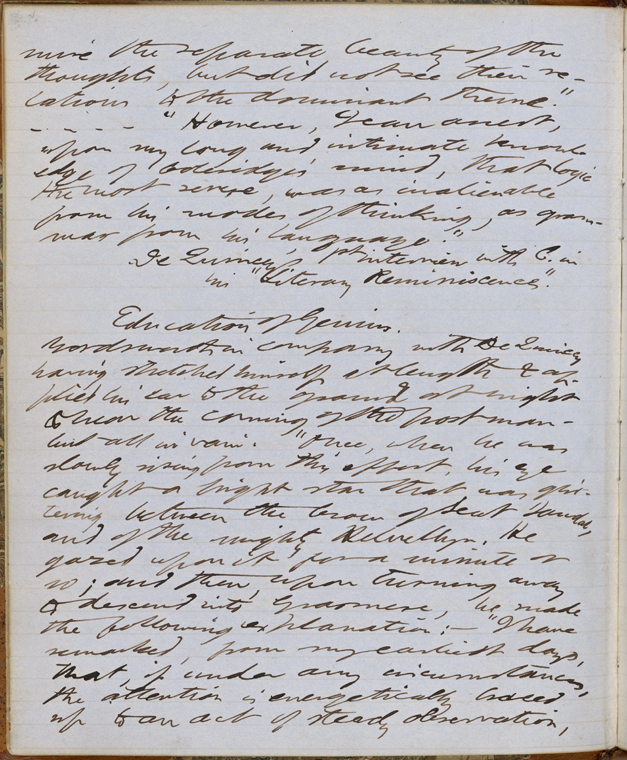 mire the separate beauty of the
thoughts, but did not see their re-
lations to the dominant theme."
- - - - - "However, I can assert,
upon my long and intimate knowl
edge of Coleridge's mind, that logic
the most severe, was as inalienable
from his modes of thinking, as gram-
mar from his language."
De Quincey's 1st interview with C. in
his "Literary Reminiscences".
Education of Genius.
Wordsworth in company with De Quincey
having stretched himself at length & ap
plied his ear to the ground at night
to hear the coming of the post man-
but all in vain. "Once, when he was
slowly rising from this effort, his eye
caught a bright star that was glit-
tering between the brow of Seat Sandal,
and of the mighty Helvellyn. He
gazed upon it for a minute or
so; and then, upon turning away
to descend into Grasmere, he made
the following explanation:- "I have
remarked, from my earliest days,
that, if under any circumstances,
the attention is energetically braced
up to an act of steady observation,